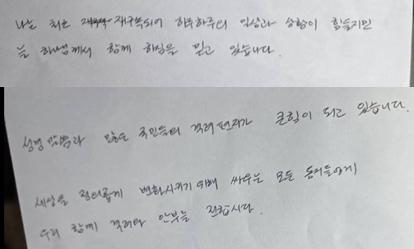 나는 최근 재구속되어 하루하루의 일상과 상황이 힘들지만
늘 하나님께서 함께 하심을 믿고 있습니다.
성경말씀과 많은 국민들의 격려편지가 큰힘이 되고 있습니다.
세상을 정의롭게 변화시키기 위해 싸우는 모든 동지들에게
우리 함께 격려와 안부를 전합시다.